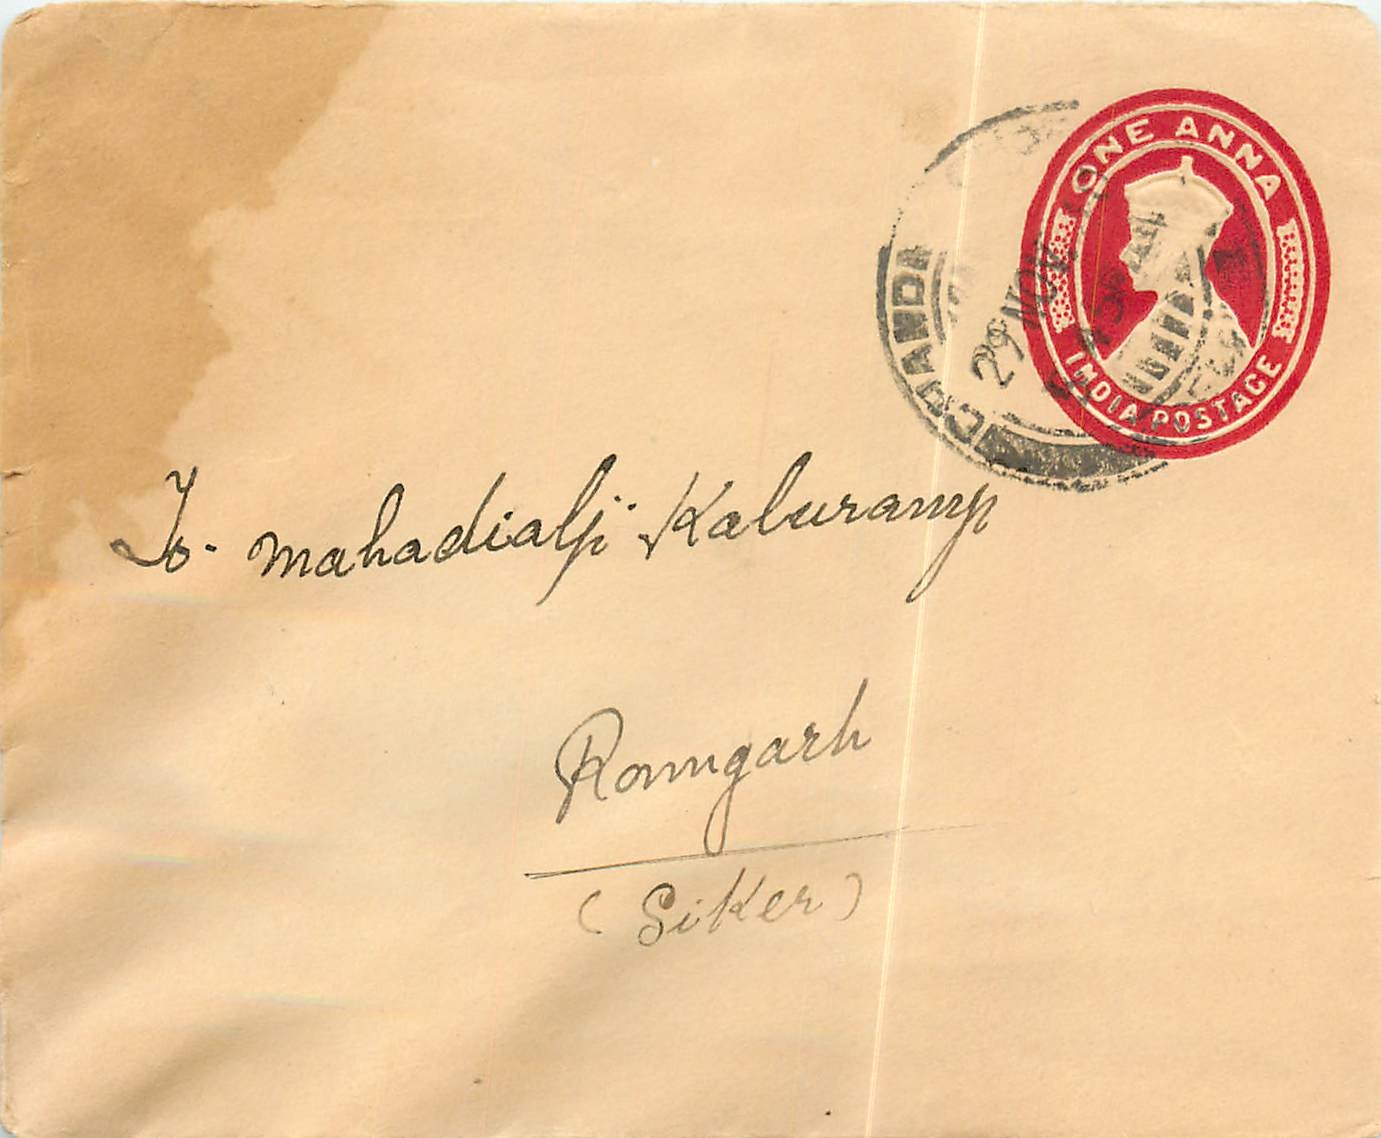 ONE ANNA
INDIA POSTAGE
29 NOV
To. Mahadialji Kaluramji
Ramgarh
(Siker)